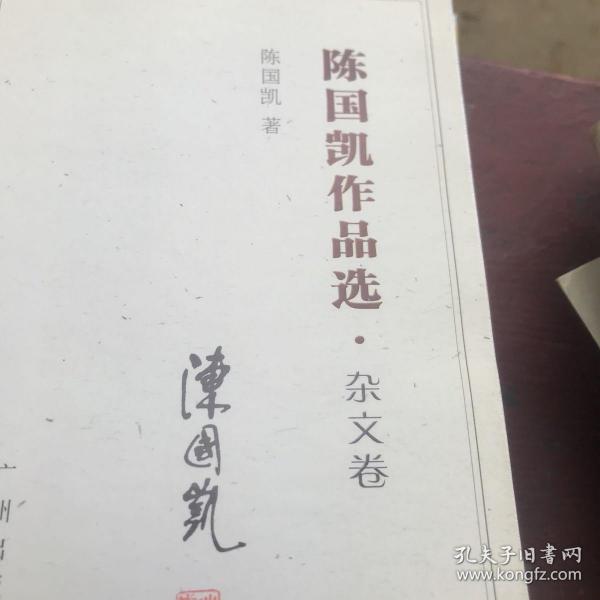 陈国凯作品选·杂文卷
陈国凯 著
陳國凱
州出
孔夫子旧书网
www.kongfz.com